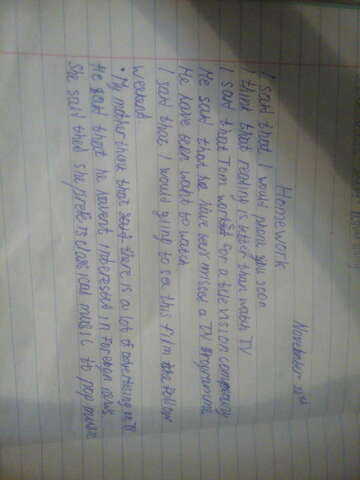 November
Homework
I said that I would phone you soon
I think that reading is better than watch TV
I said that Tom worked for a television company
He said that he have been missed a TV programme
He have been want to watch
I said that I would going to see this film the follow
weekend.
• My mother think that there is a lot of advertising on TV
He said that he havent interested in foreign news.
She said that she prefers classical music to pop music